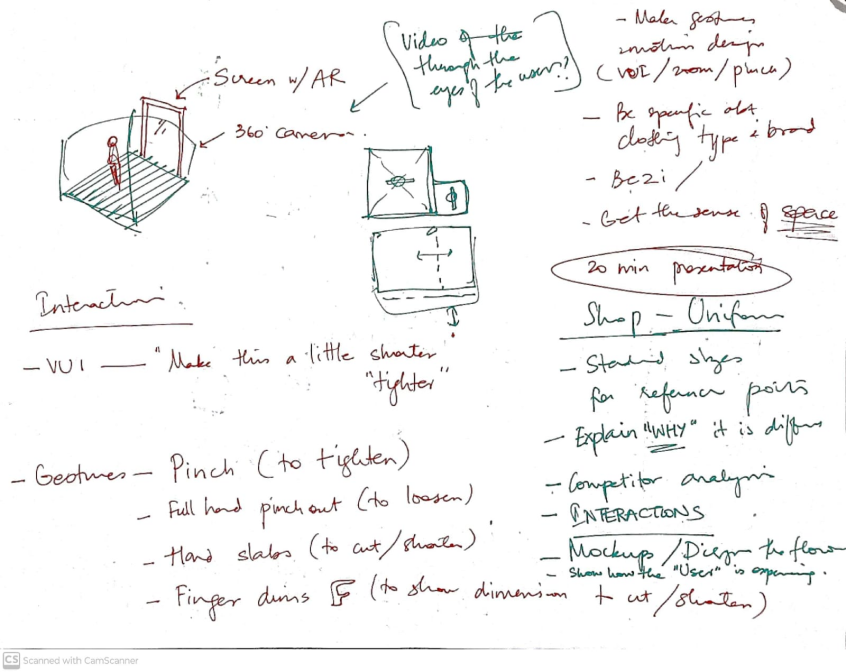 Video of the
through the
eyes of the user??
Screen w/ AR
360° camera.
- Make gestures
motion design
(VUI/zoom/pinch)
- Be specific abt
clothing type & brand
- Bezi /
- Get the sense of space
20 min presentation
Interaction.
- VUI — "Make this a little shorter
"tighter"
- Gestures - Pinch (to tighten)
- Full hand pinch out (to loosen)
- Hand slabs (to cut/shorten)
- Finger dims (to show dimension + cut/shorten)
Shop - Uniform
- Standard sizes
for reference points
- Explain "WHY" it is
- Competitor analysis
- INTERACTIONS
- Mockups / the flow
- Show how the "User" is
CS Scanned with CamScanner